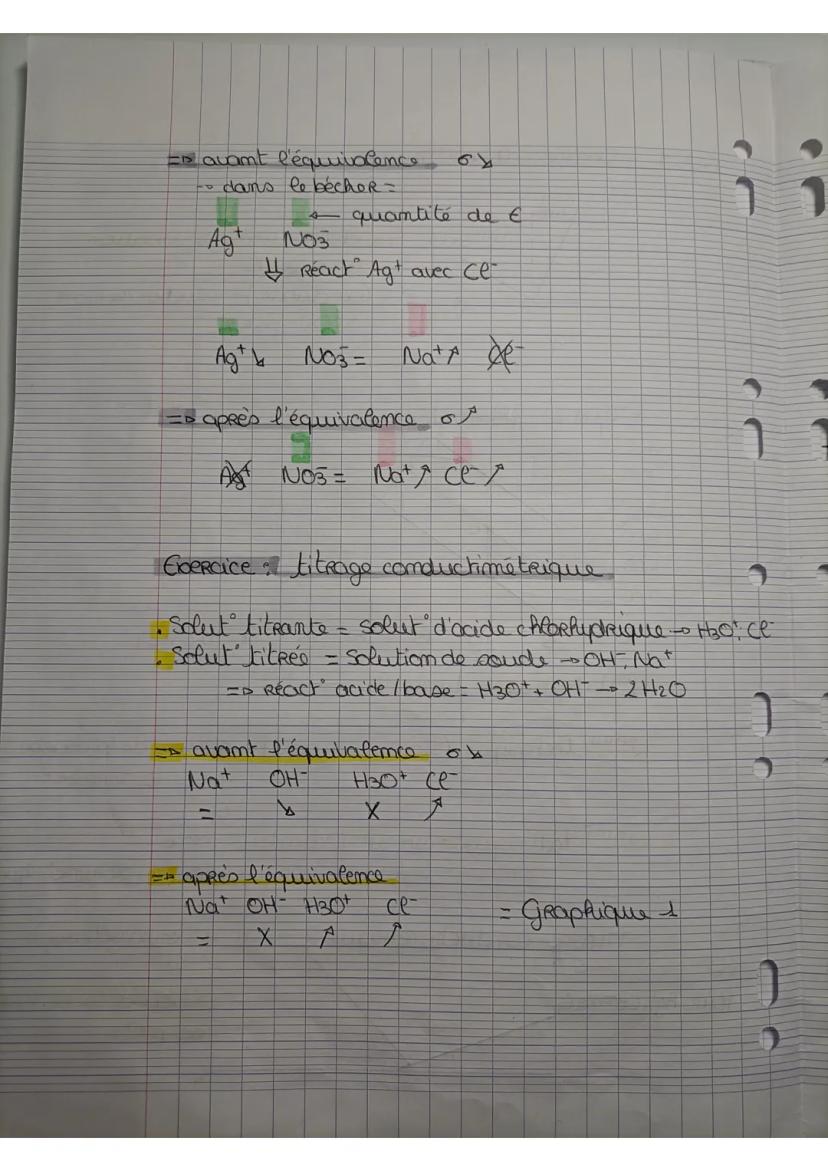 => avant l'équivalence σ ↘
→ dans le bécher =
← quantité de €
Ag+ NO3-
⇓ Réact° Ag+ avec Cl-
Ag+ ↘ NO3- = Na+ ↗ Cl-
=> après l'équivalence σ ↗
Ag+ NO3- = Na+ ↗ Cl- ↗
Exercice : titrage conductimétrique
. Solut° titrante = solut° d'acide chlorhydrique → H3O+; Cl-
. Solut° titrée = Solution de soude → OH-; Na+
=> Réact° acide/base = H3O+ + OH- → 2H2O
=> avant l'équivalence σ ↘
Na+ OH- H3O+ Cl-
= ↘ X ↗
=> après l'équivalence
Na+ OH- H3O+ Cl- = Graphique 1
= X ↗ ↗